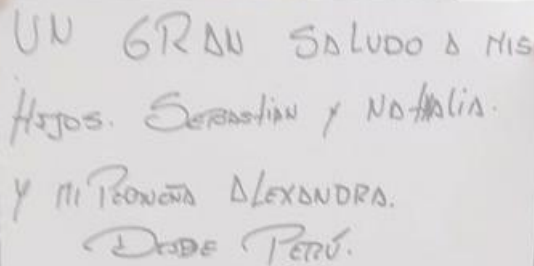 UN GRAN SALUDO A MIS
HIJOS. SEBASTIAN Y NATHALIA.
Y MI PEQUEÑA ALEXANDRA.
DESDE PERÚ.